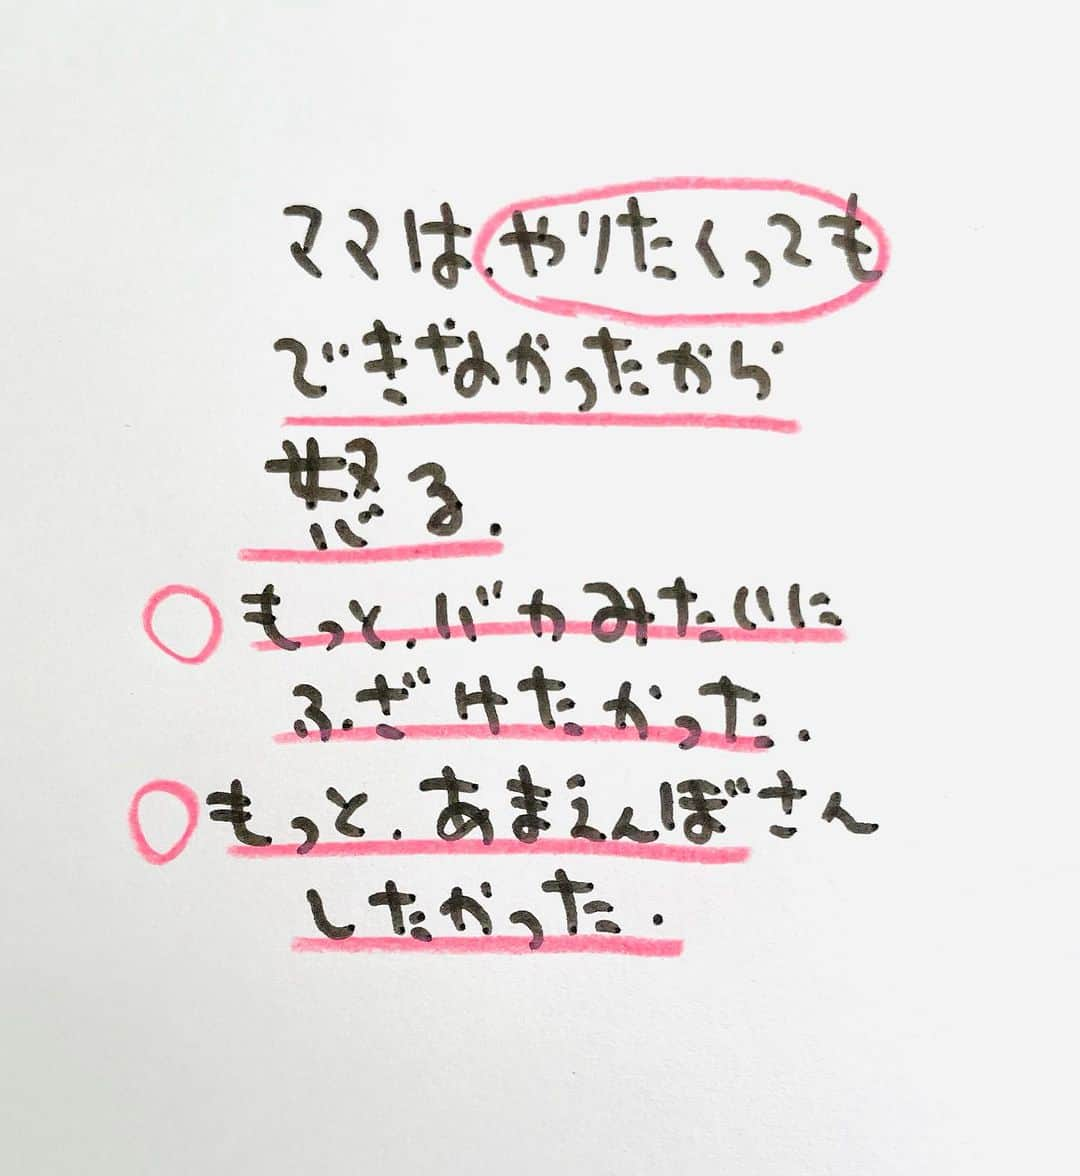 ママは.やりたくっても
できなかったから
怒る.
もっと.バカみたいに
ふざけたかった.
もっと.あまえんぼさん
したかった.